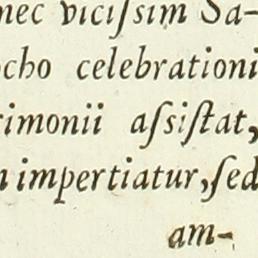 nec viciſsim Sa-
ocho celebrationi
rimonii aſsiſtat,
n impertiatur, ſed
am-